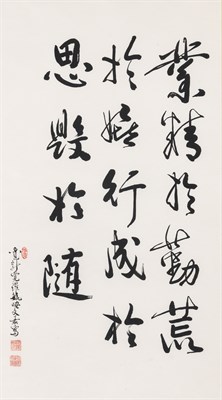 業精於勤荒
於嬉行成於
思毁於随